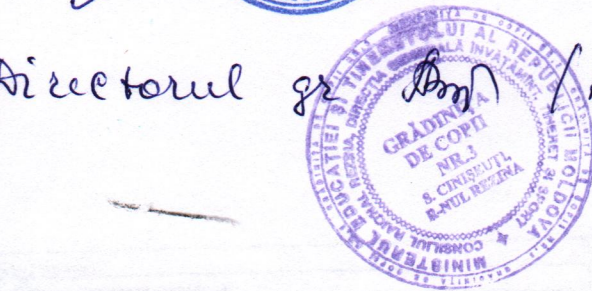 Directorul gr
MINISTERUL EDUCATIEI ȘI TINERETULUI AL REPUBLICII MOLDOVA
CONSILIUL RAIONAL REZINA, DIRECȚIA GENERALĂ ÎNVĂȚĂMÎNT, TINERET ȘI SPORT
GRĂDINIȚA
DE COPII
NR.3
S. CINIȘEUȚI,
R-NUL REZINA